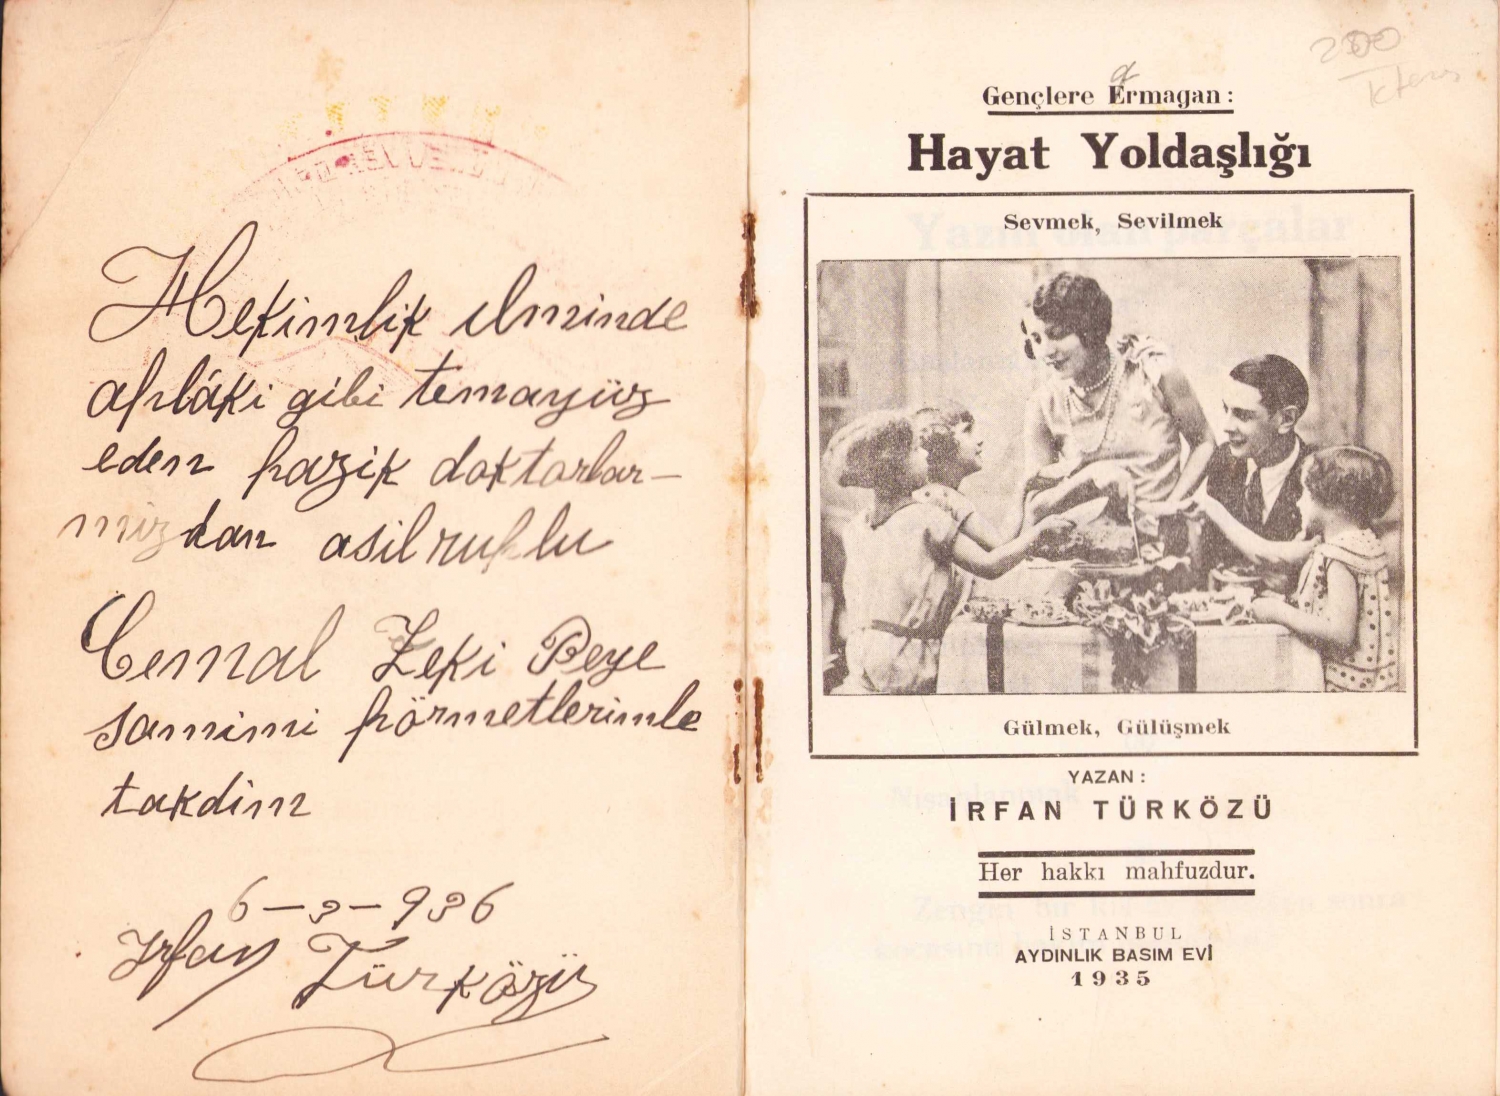 Hekimlik ilminde
ahlâki gibi temayüz
eden hazik doktorlar-
mızdan asil ruhlu
Cemal Zeki Beye
samimi hörmetlerimle
takdim
6-3-936
Irfan Türközü
200
Gençlere Ermagan:
a
Hayat Yoldaşlığı
Sevmek, Sevilmek
Gülmek, Gülüşmek
YAZAN:
İRFAN TÜRKÖZÜ
Her hakkı mahfuzdur.
İSTANBUL
AYDINLIK BASIM EVİ
1935